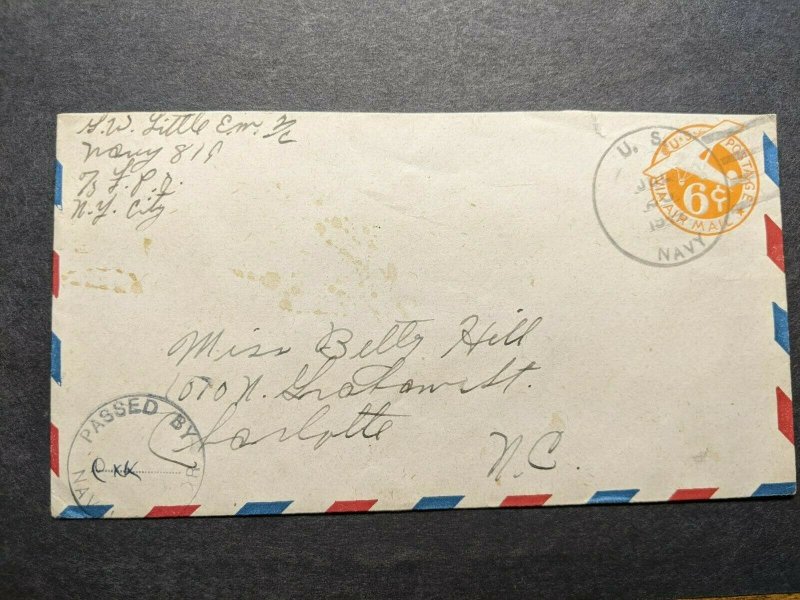 G.W. Little Em. 2/c
Navy 819
℅ F.P.O.
N.Y. City
U.S.
NAVY
U.S. POSTAGE
6¢
VIA AIR MAIL
Miss Betty Hill
1010 N. Graham St.
Charlotte
N.C.
PASSED BY
NAV